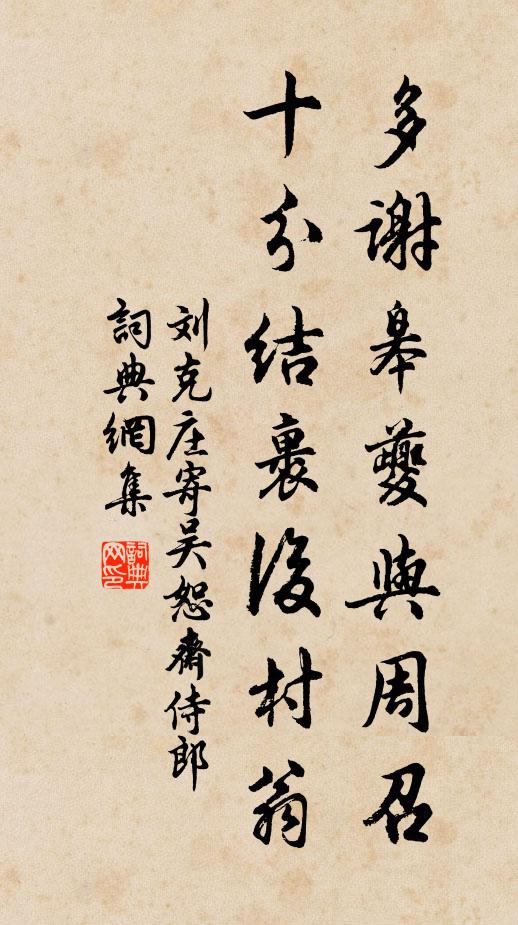 多谢皋夔與周召
十分结裹後村翁
刘克庄寄吴恕齋侍郎
詞典網集
詞典
网印